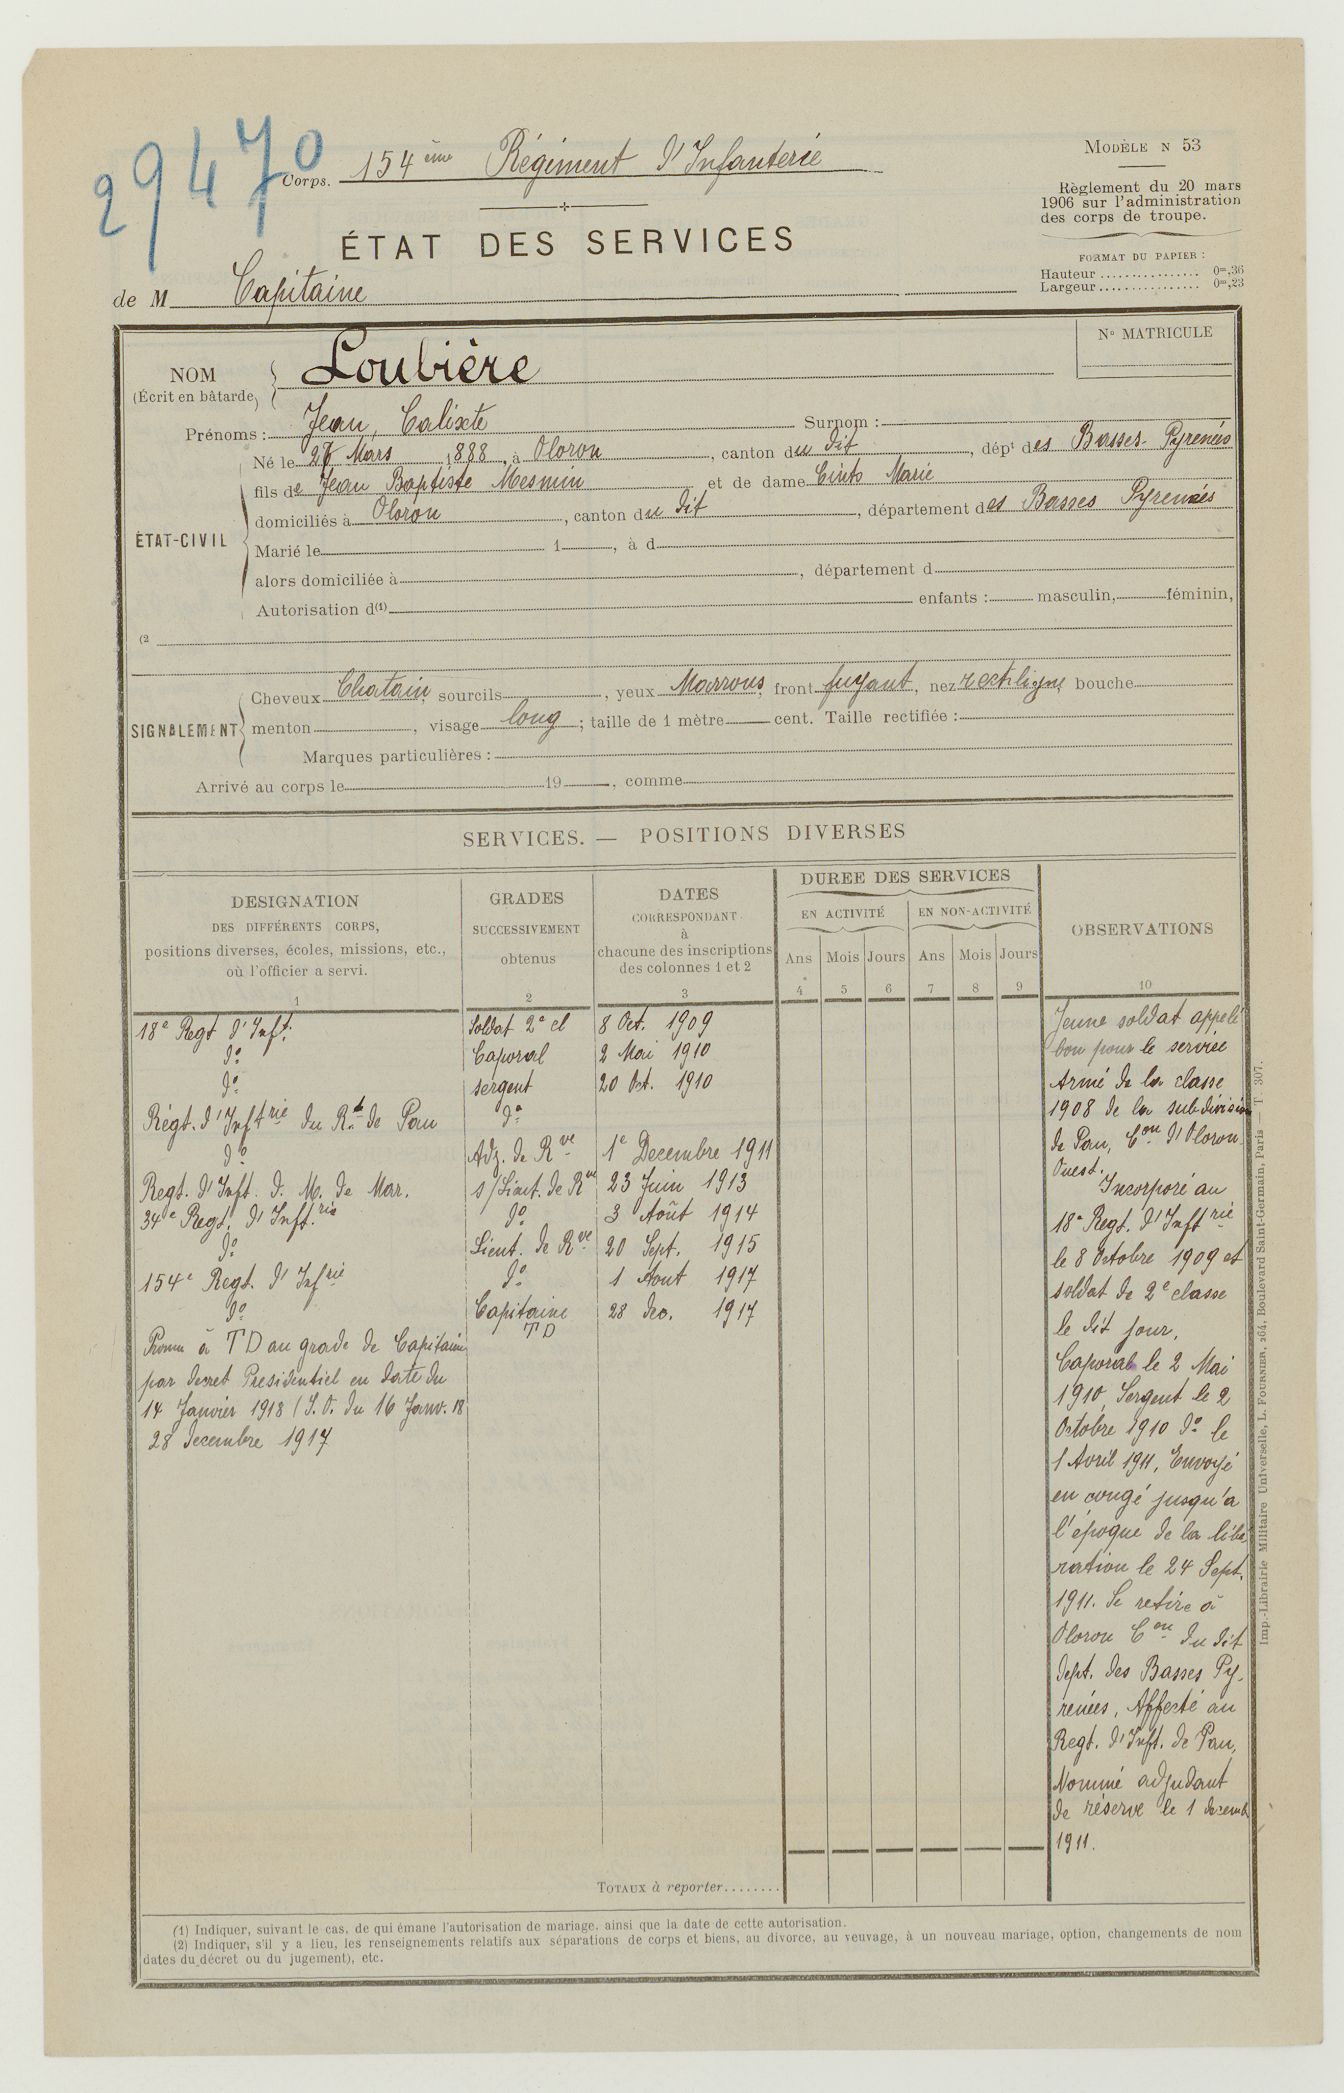 29470
Corps. 154ème Régiment d'Infanterie
MODÈLE N 53
Règlement du 20 mars
1906 sur l'administration
des corps de troupe.
FORMAT DU PAPIER :
Hauteur ................ 0m,36
Largeur ................ 0m,23
ÉTAT DES SERVICES
de M Capitaine
N° MATRICULE
NOM
(Écrit en bâtarde)
Loubière
Prénoms : Jean, Calixte Surnom :
Né le 27 Mars 1888, à Oloron, canton du dit, dépt des Basses-Pyrenées
fils de Jean Baptiste Mesmin et de dame Cinto Marie
domiciliés à Oloron, canton du dit, département des Basses Pyrenées
ÉTAT-CIVIL
Marié le 1 , à d
alors domiciliée à , département d
Autorisation d(1) enfants : masculin, féminin,
(2
SIGNALEMENT
Cheveux Chatain, sourcils , yeux Marrons, front fuyant, nez rectiligne, bouche
menton , visage long ; taille de 1 mètre cent. Taille rectifiée :
Marques particulières :
Arrivé au corps le 19 , comme
SERVICES. — POSITIONS DIVERSES
DESIGNATION
DES DIFFÉRENTS CORPS,
positions diverses, écoles, missions, etc.,
où l'officier a servi.
1
GRADES
SUCCESSIVEMENT
obtenus
2
DATES
CORRESPONDANT
à
chacune des inscriptions
des colonnes 1 et 2
3
DUREE DES SERVICES
EN ACTIVITÉ EN NON-ACTIVITÉ
Ans Mois Jours Ans Mois Jours
4 5 6 7 8 9
OBSERVATIONS
10
18e Regt d'Inft. Soldat 2e cl 8 Oct. 1909
do Caporal 2 Mai 1910
do sergent 20 Oct. 1910
Régt. d'Inftrie du Rt de Pau do
do Adj. de Rve 1e Decembre 1911
Regt. d'Inft. d. M. de Mar. s/Lieut. de Rve 23 Juin 1913
34e Regt. d'Inft.rie do 3 Août 1914
do Lieut. de Rve 20 Sept. 1915
154e Regt. d'Infrie do 1 Aout 1917
do Capitaine 28 dec. 1917
TD
Promu à TD au grade de Capitaine
par decret Presidentiel en date du
14 Janvier 1918 (J.O. du 16 Janv. 18
28 decembre 1917
Jeune soldat appelé
bon pour le service
Armé de la classe
1908 de la subdivision
de Pau, Con d'Oloron
Ouest.
Incorporé au
18e Regt. d'Inftrie
le 8 Octobre 1909 et
soldat de 2e classe
le dit jour,
Caporal le 2 Mai
1910, Sergent le 2
Octobre 1910 do le
1 Avril 1911, Envoyé
en congé jusqu'a
l'époque de la libé
ration le 24 Sept.
1911. Se retire à
Oloron Con du dit
dept. des Basses Py-
renées, Affecté au
Regt. d'Inft. de Pau,
Nommé adjudant
de réserve le 1 decemb
1911.
TOTAUX à reporter........
(1) Indiquer, suivant le cas, de qui émane l'autorisation de mariage, ainsi que la date de cette autorisation.
(2) Indiquer, s'il y a lieu, les renseignements relatifs aux séparations de corps et biens, au divorce, au veuvage, à un nouveau mariage, option, changements de nom
dates du décret ou du jugement), etc.
Imp.-Librairie Militaire Universelle, L. FOURNIER, 264, Boulevard Saint-Germain, Paris — T. 307.